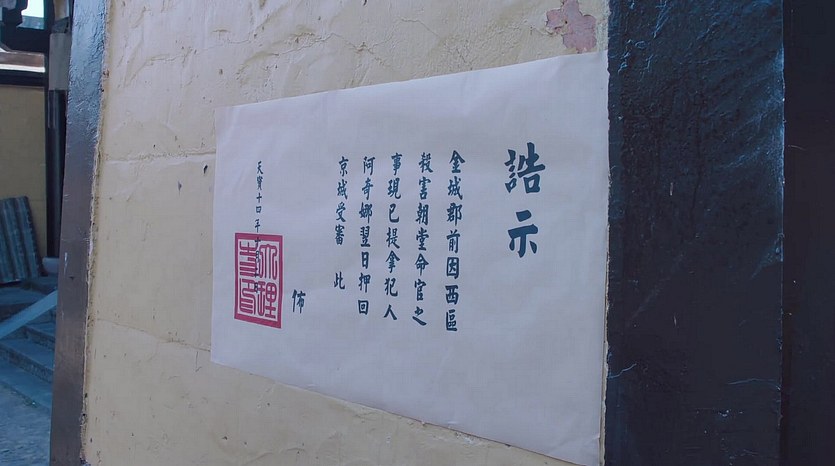 誥示
金城郡前因西區
殺害朝堂命官之
事現已提拿犯人
阿奇娜翌日押回
京城受審 此
佈
天寶十四年十
大理寺印